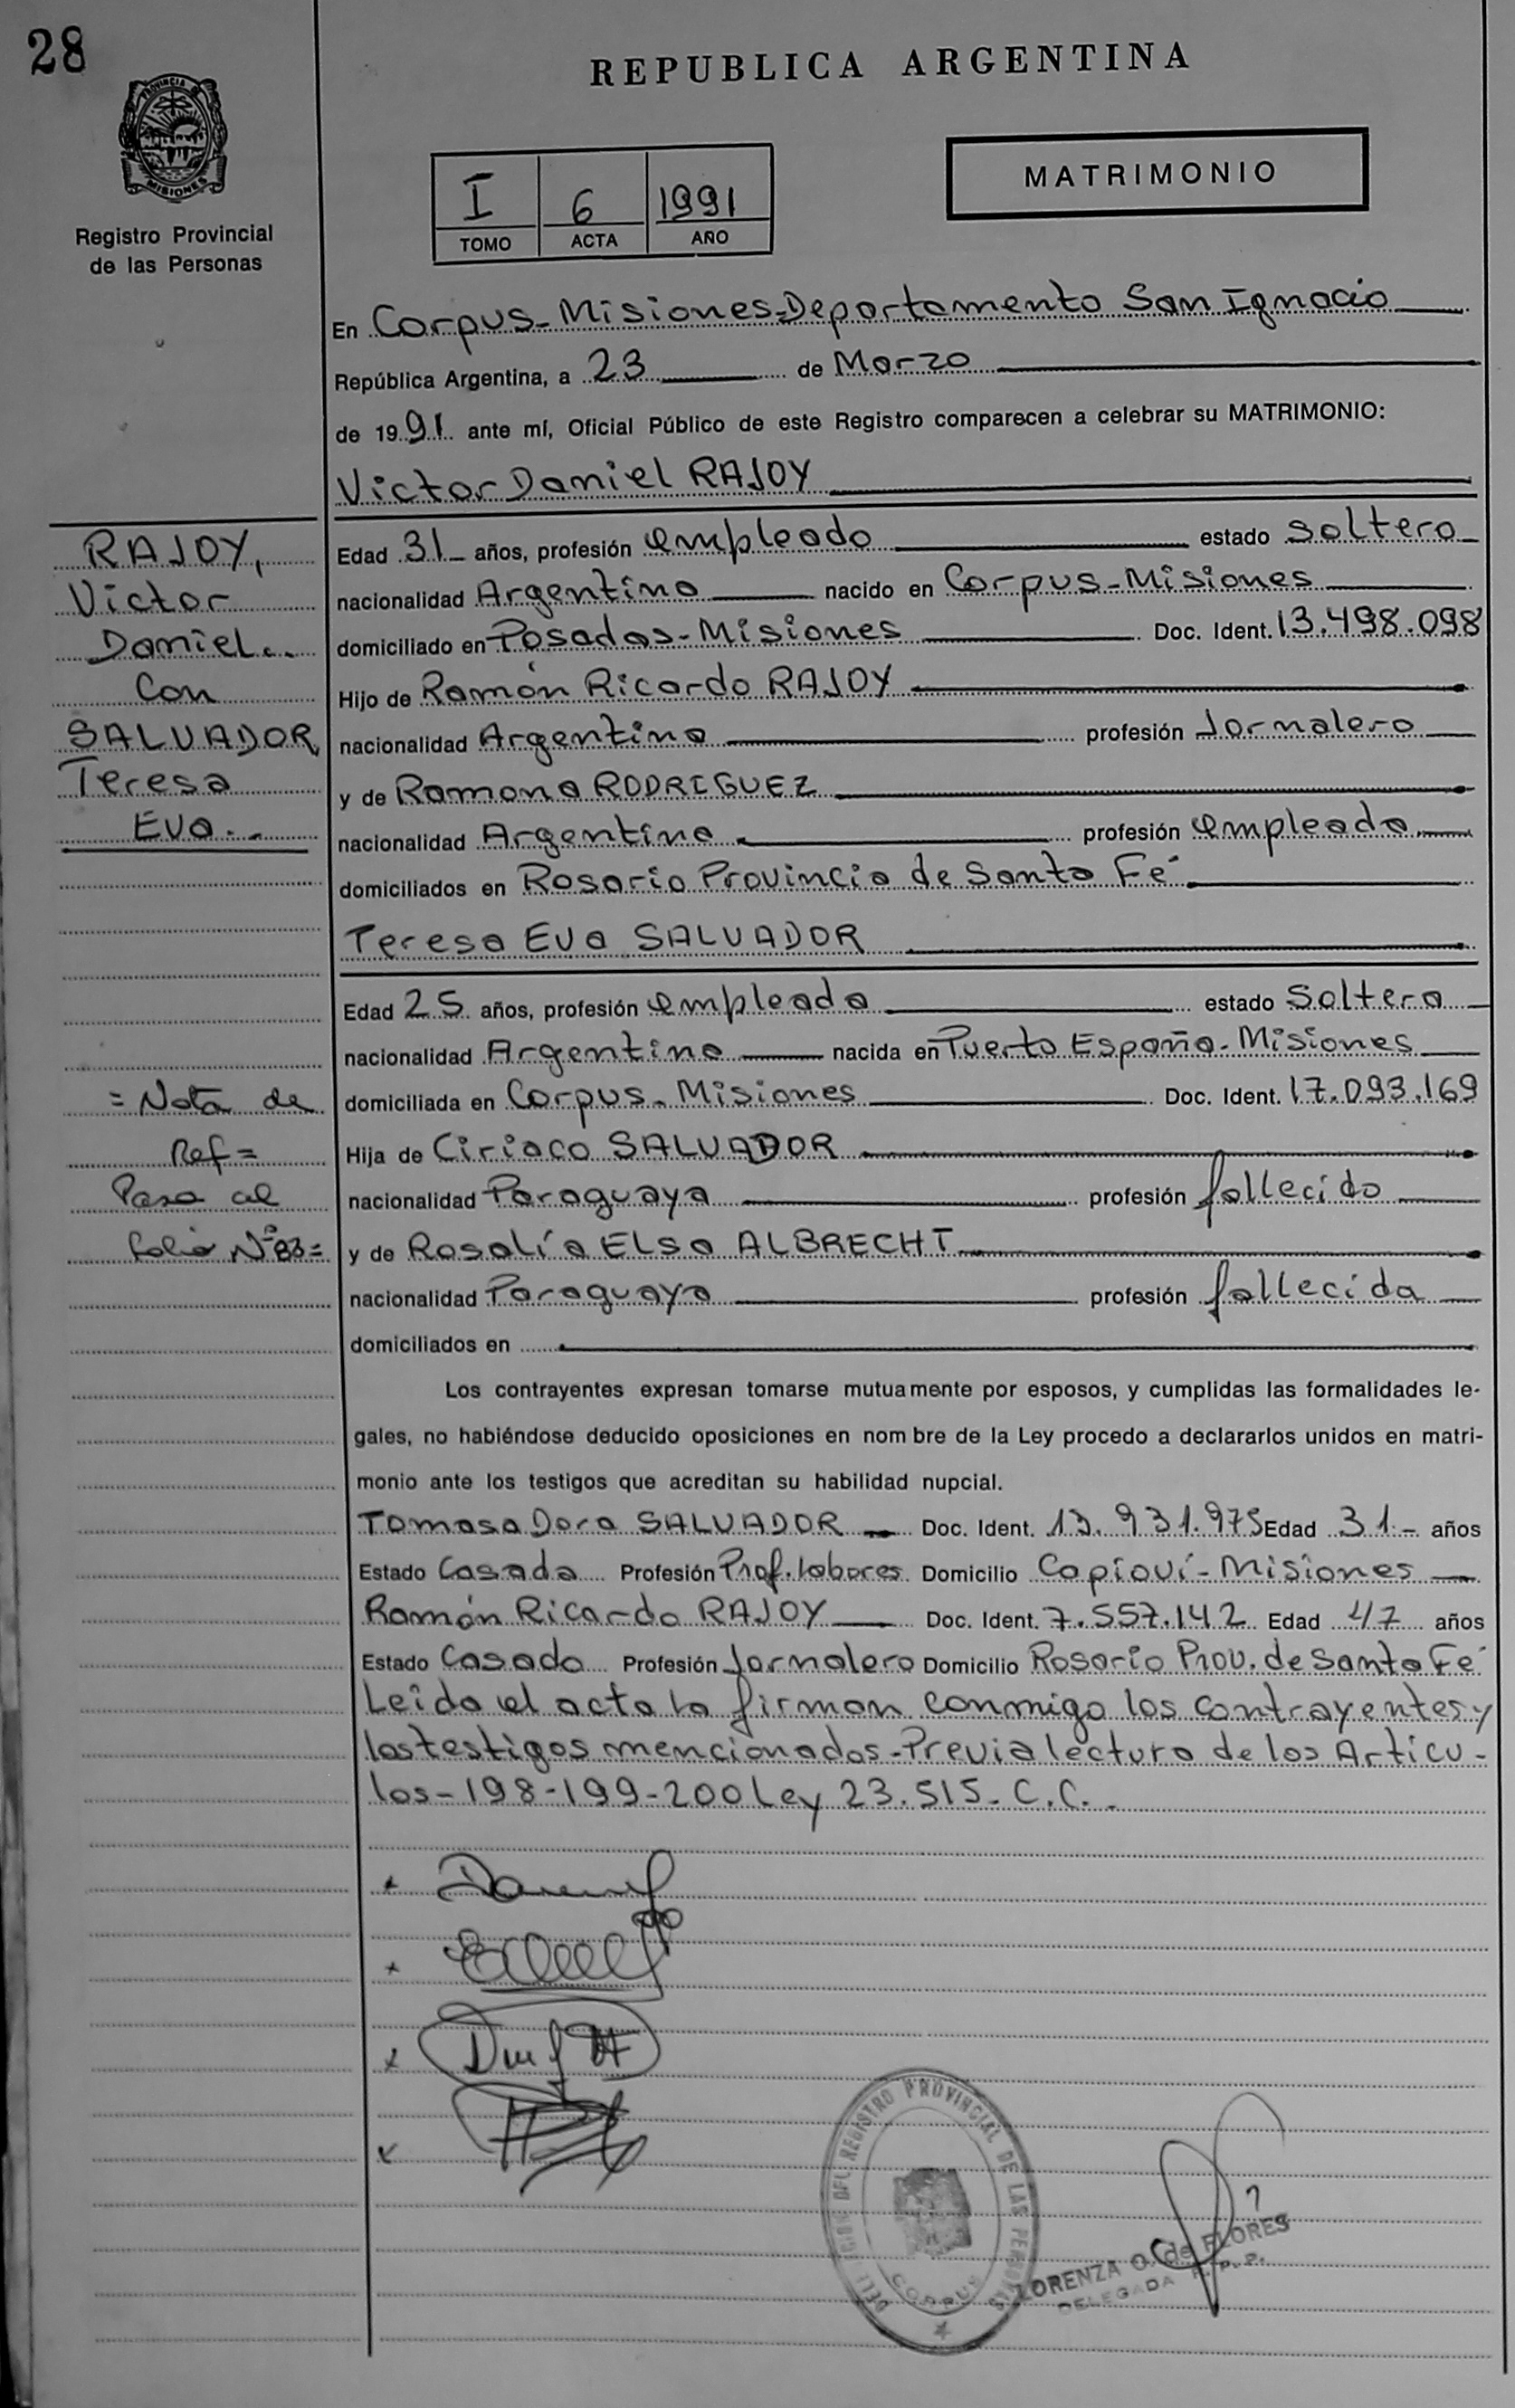 28
REPUBLICA ARGENTINA
PROVINCIA DE
MISIONES
Registro Provincial
de las Personas
I 6 1991
TOMO ACTA AÑO
MATRIMONIO
En Corpus - Misiones - Departamento San Ignacio
República Argentina, a 23 de Marzo
de 1991 ante mí, Oficial Público de este Registro comparecen a celebrar su MATRIMONIO:
Victor Daniel RAJOY
RAJOY,
Victor
Daniel..
Con
SALVADOR
Teresa
Eva.-
Edad 31 años, profesión empleado estado soltero
nacionalidad Argentina nacido en Corpus - Misiones
domiciliado en Posadas - Misiones Doc. Ident. 13.498.098
Hijo de Ramón Ricardo RAJOY
nacionalidad Argentina profesión Jornalero
y de Ramona RODRIGUEZ
nacionalidad Argentina profesión empleada
domiciliados en Rosario Provincia de Santa Fé
Teresa Eva SALVADOR
Edad 25 años, profesión empleada estado Soltera
nacionalidad Argentina nacida en Puerto España - Misiones
domiciliada en Corpus - Misiones Doc. Ident. 17.093.169
Hija de Ciriaco SALVADOR
nacionalidad Paraguaya profesión fallecido
y de Rosalía Elsa ALBRECHT
nacionalidad Paraguaya profesión fallecida
domiciliados en
= Nota de
Ref =
Pasa al
folio Nº 83 =
Los contrayentes expresan tomarse mutuamente por esposos, y cumplidas las formalidades le-
gales, no habiéndose deducido oposiciones en nom bre de la Ley procedo a declararlos unidos en matri-
monio ante los testigos que acreditan su habilidad nupcial.
Tomasa Dora SALVADOR Doc. Ident. 13.931.975 Edad 31 años
Estado Casada Profesión Prof. labores Domicilio Capioví - Misiones
Ramón Ricardo RAJOY Doc. Ident. 7.557.142 Edad 47 años
Estado Casado Profesión Jornalero Domicilio Rosario Prov. de Santa Fé
Leída el acta la firman conmigo los contrayentes y
los testigos mencionados - Previa lectura de los Artícu-
los - 198-199-200 Ley 23.515 - C.C.-
DELEGACION DEL REGISTRO PROVINCIAL DE LAS PERSONAS
CORPUS
LORENZA O. de FLORES
DELEGADA R. P. P.